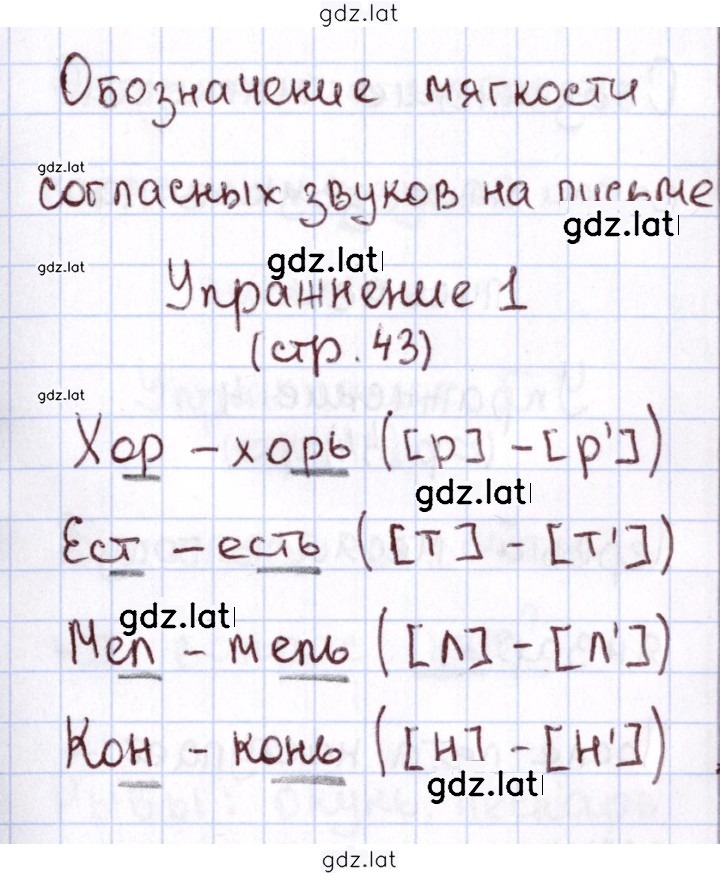 gdz.lat
Обозначение мягкости
gdz.lat
согласных звуков на письме
gdz.lat
gdz.lat
gdz.lat
Упражнение 1
(стр. 43)
gdz.lat
Хор - хорь ([р] - [р'])
gdz.lat
Ест - есть ([т] - [т'])
gdz.lat
Мел - мель ([л] - [л'])
Кон - конь ([н] - [н'])
gdz.lat
gdz.lat